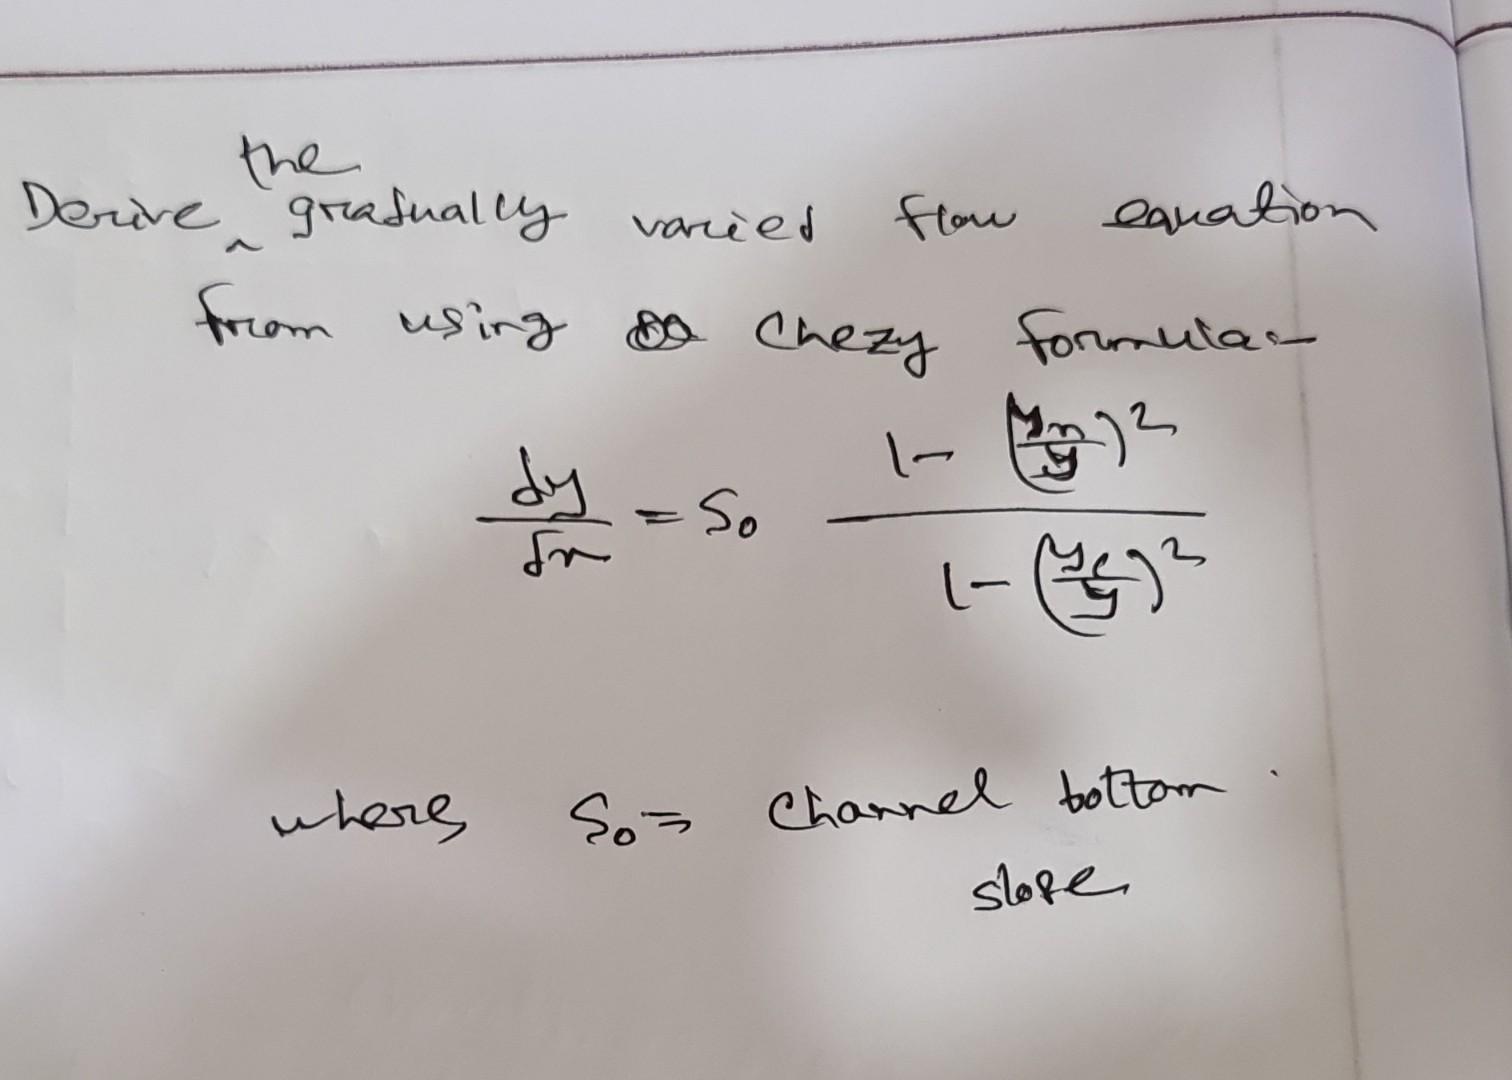 the
Derive ^ gradually varied flow equation
from using Chezy formula:-
dy/dx = S₀ (1 - (yn/y)²) / (1 - (yc/y)²)
where S₀ = Channel bottom
slope